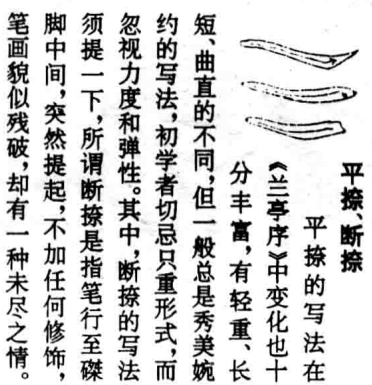 平捺、断捺
平捺的写法在
《兰亭序》中变化也十
分丰富，有轻重、长
短、曲直的不同，但一般总是秀美婉
约的写法，初学者切忌只重形式，而
忽视力度和弹性。其中，断捺的写法
须提一下，所谓断捺是指笔行至磔
脚中间，突然提起，不加任何修饰，
笔画貌似残破，却有一种未尽之情。